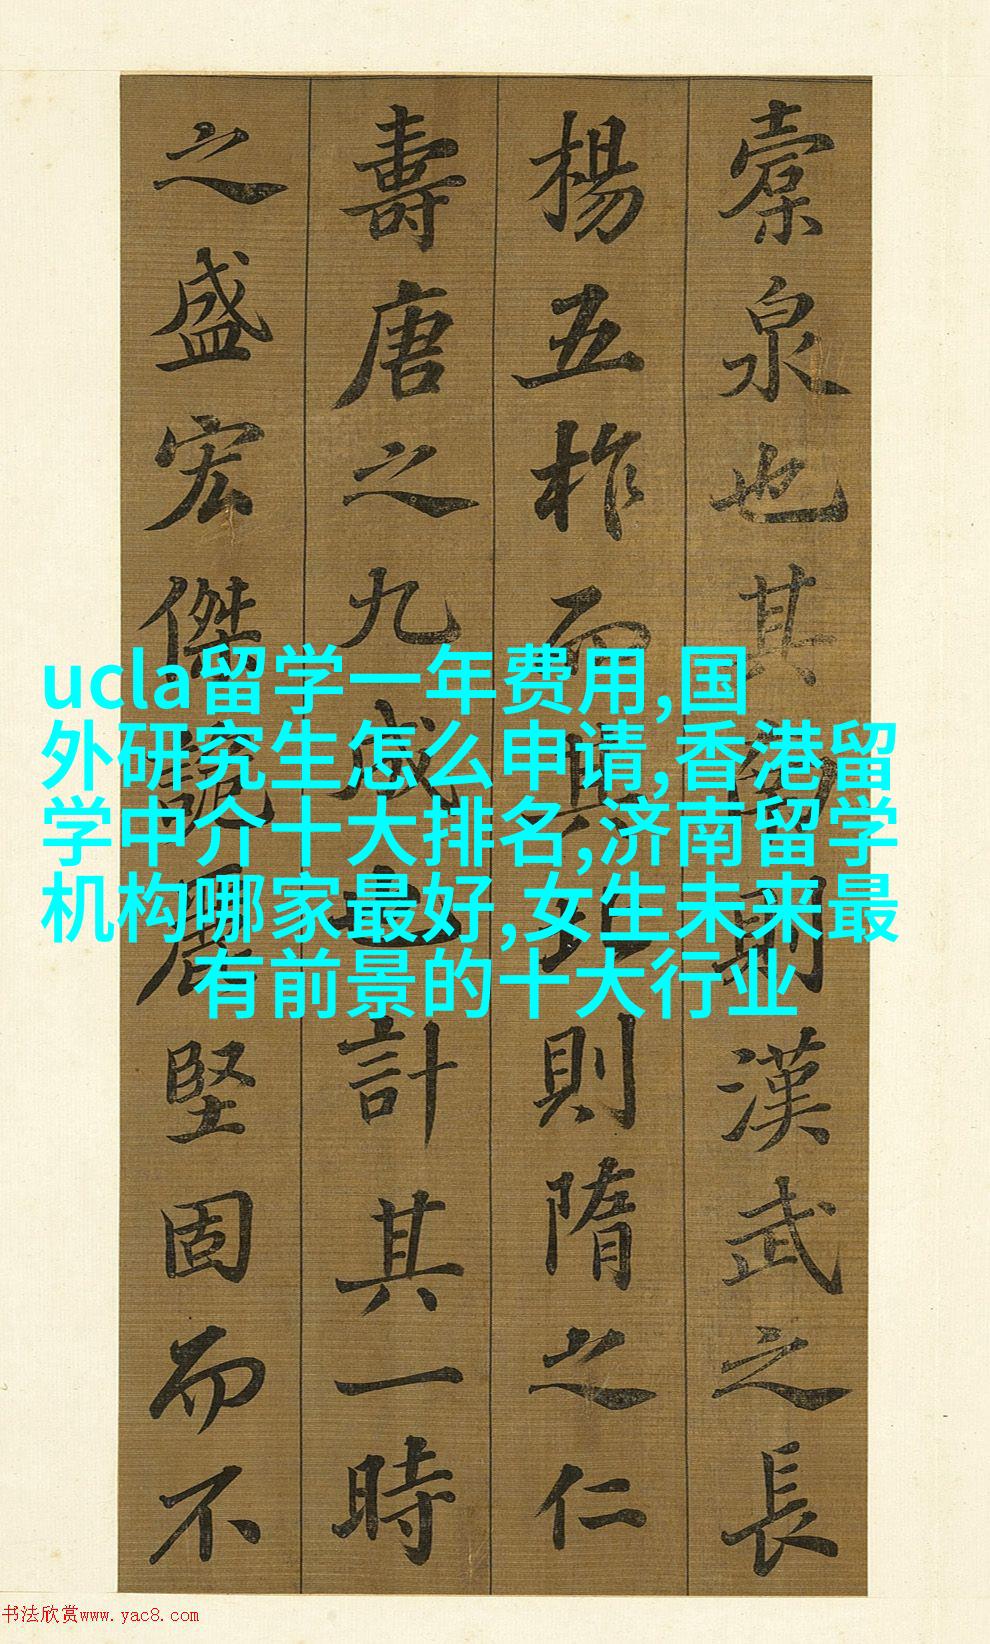 橐泉也其南則漢武之長
楊五柞而其北則隋之仁
壽唐之九成也計其一時
之盛宏傑詭麗堅固而不
ucla留学一年费用,国
外研究生怎么申请,香港留
学中介十大排名,济南留学
机构哪家最好,女生未来最
有前景的十大行业
书法欣赏www.yac8.com